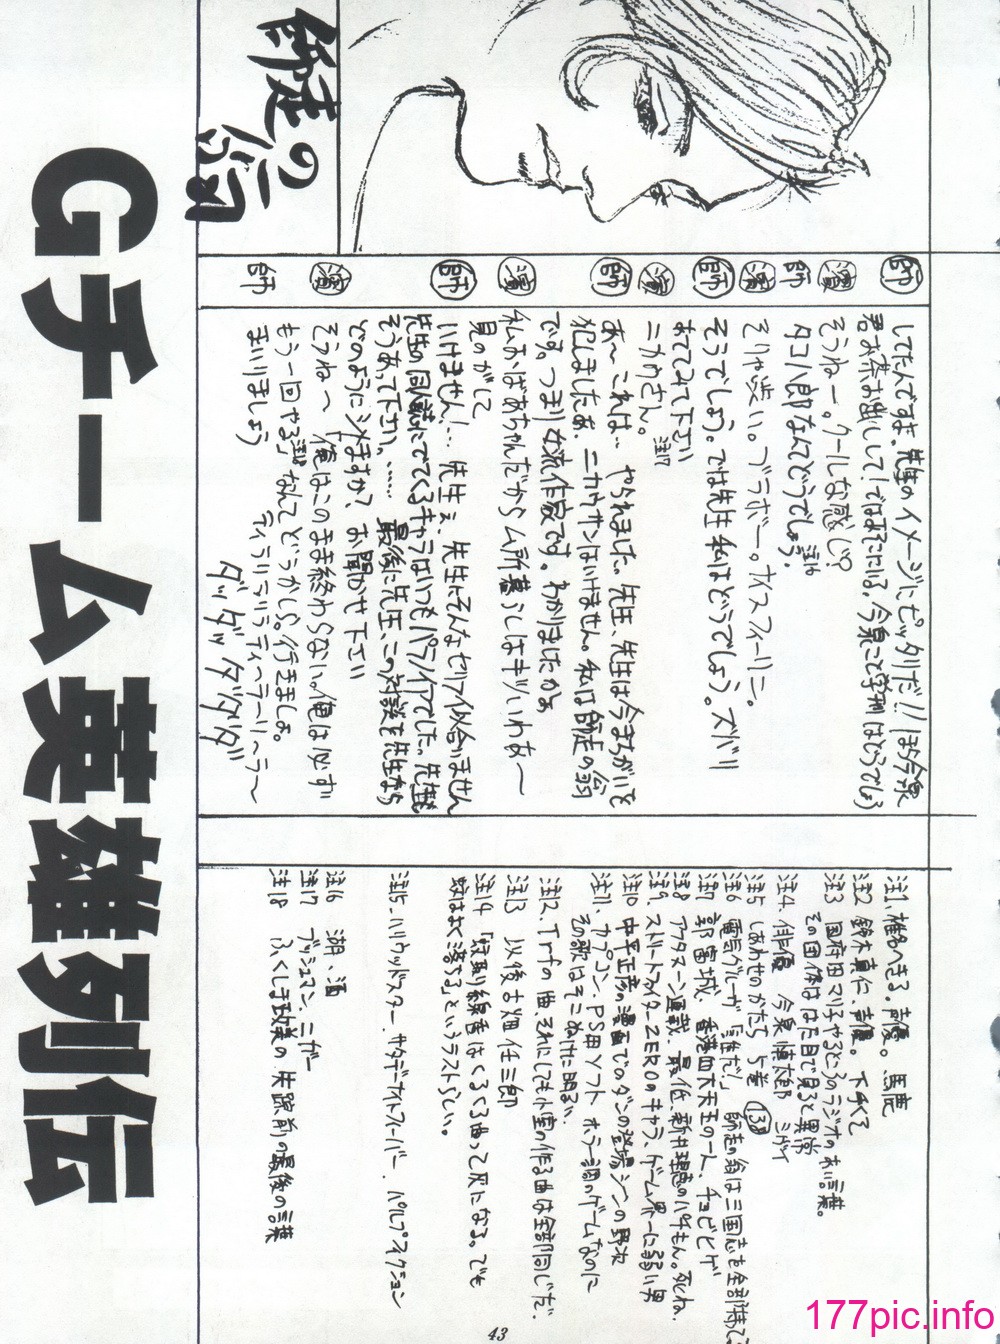 Gチーム英雄列伝
師走の翁
師 してたんですネ。先生のイメージにピッタリだ!!ほら今泉
君お茶お出しして!ではネにいる。今泉こと学州はどうでしょう
濱 そうねー。クールな感じ?
師 タコ八郎なんてどうでしょう。注16
濱 そりゃ渋い。ブラボー。ナイスフィーリン。
師 そうでしょう。では先生私はどうでしょう。ズバリ
おててみて下さい
濱 ニカウさん。注17
師 あ〜これは‥やられました。先生、先生は今まちがいを
犯しましたぁ。ニカウサンはいけません。私は師走の翁
です。つまり女流作家です。わかりましたかよ
濱 私おばあちゃんだからム所暮らしはキツいわあ〜
見のがして
師 いけません!…先生ぇ、先生にそんなセリフ似合いません
先生の同人誌にでてくるキャラはいつもパワフルでした。先生も
そうあて下さい。……最後に先生、この対談を先生なら
どのようにシメますか?お聞かせ下さい
濱 そうねへ「俺はこのまま終わらないい俺は必ず
もう一回やる」注18なんてどうかしら。行きましょ。
師 まいりましょう ティラリラリラティ〜テーリ〜ラ〜
ダッダッダダダダ
注1.椎名へきる。声優。馬鹿
注2 鈴木真仁.声優。下手くて
注3 国府田マリ子やるところのラジヲの木信葉。
その団体ははた目で見ると異常
注4. 俳優 今泉慎太郎
注5 しあわせのかたち 5巻
注6 電気グルーヴ 師走の翁は三国志を全部
注7 郭富城 香港四大天王の一人。チョビヒゲ
注8 アフタヌーン連載.最低.新井理恵のパチもん。死ね。
注9.ストリートファイターZEROのキャラ.ゲーム界一に弱い男
注10 中平正彦の漫画でのダンの登場シーンの野次
注11.カプコン.PS用ソフト ホラー調のゲームなのに
その歌はそこぬけに明るい
注12.Trfの曲.それにしても小室の作る曲は全部同じだ.
注13 以後古畑任三郎
注14 「蚊取り線香はくるくる曲って灰になる。でも
蚊はよく落ちる」というラストらしい。
注15.ハリウッドスター.サタデーナイトフィーバー.パルプフィクション
注16 海、酒
注17 ブッシュマン.ニガー
注18 ふくしま政美の失踪前の最後の言葉
43
177pic.info